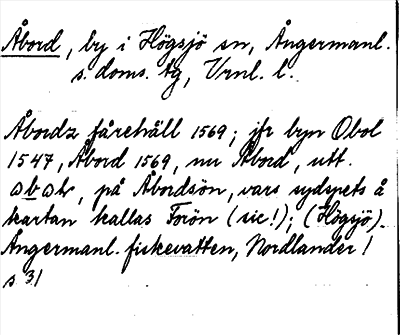 Åbord, by i Högsjö sn, Ångermanl.
s. doms. tg, Vrnl. l.
Åbordz fårehäll 1569; jfr byn Obol
1547, Åbord 1569, nu Åbord, utt.
på Åbordsön, vars sydspets å
kartan kallas Torön (sic!); (Högsjö).
Ångermanl. fiskevatten, Nordlander 1
s 31